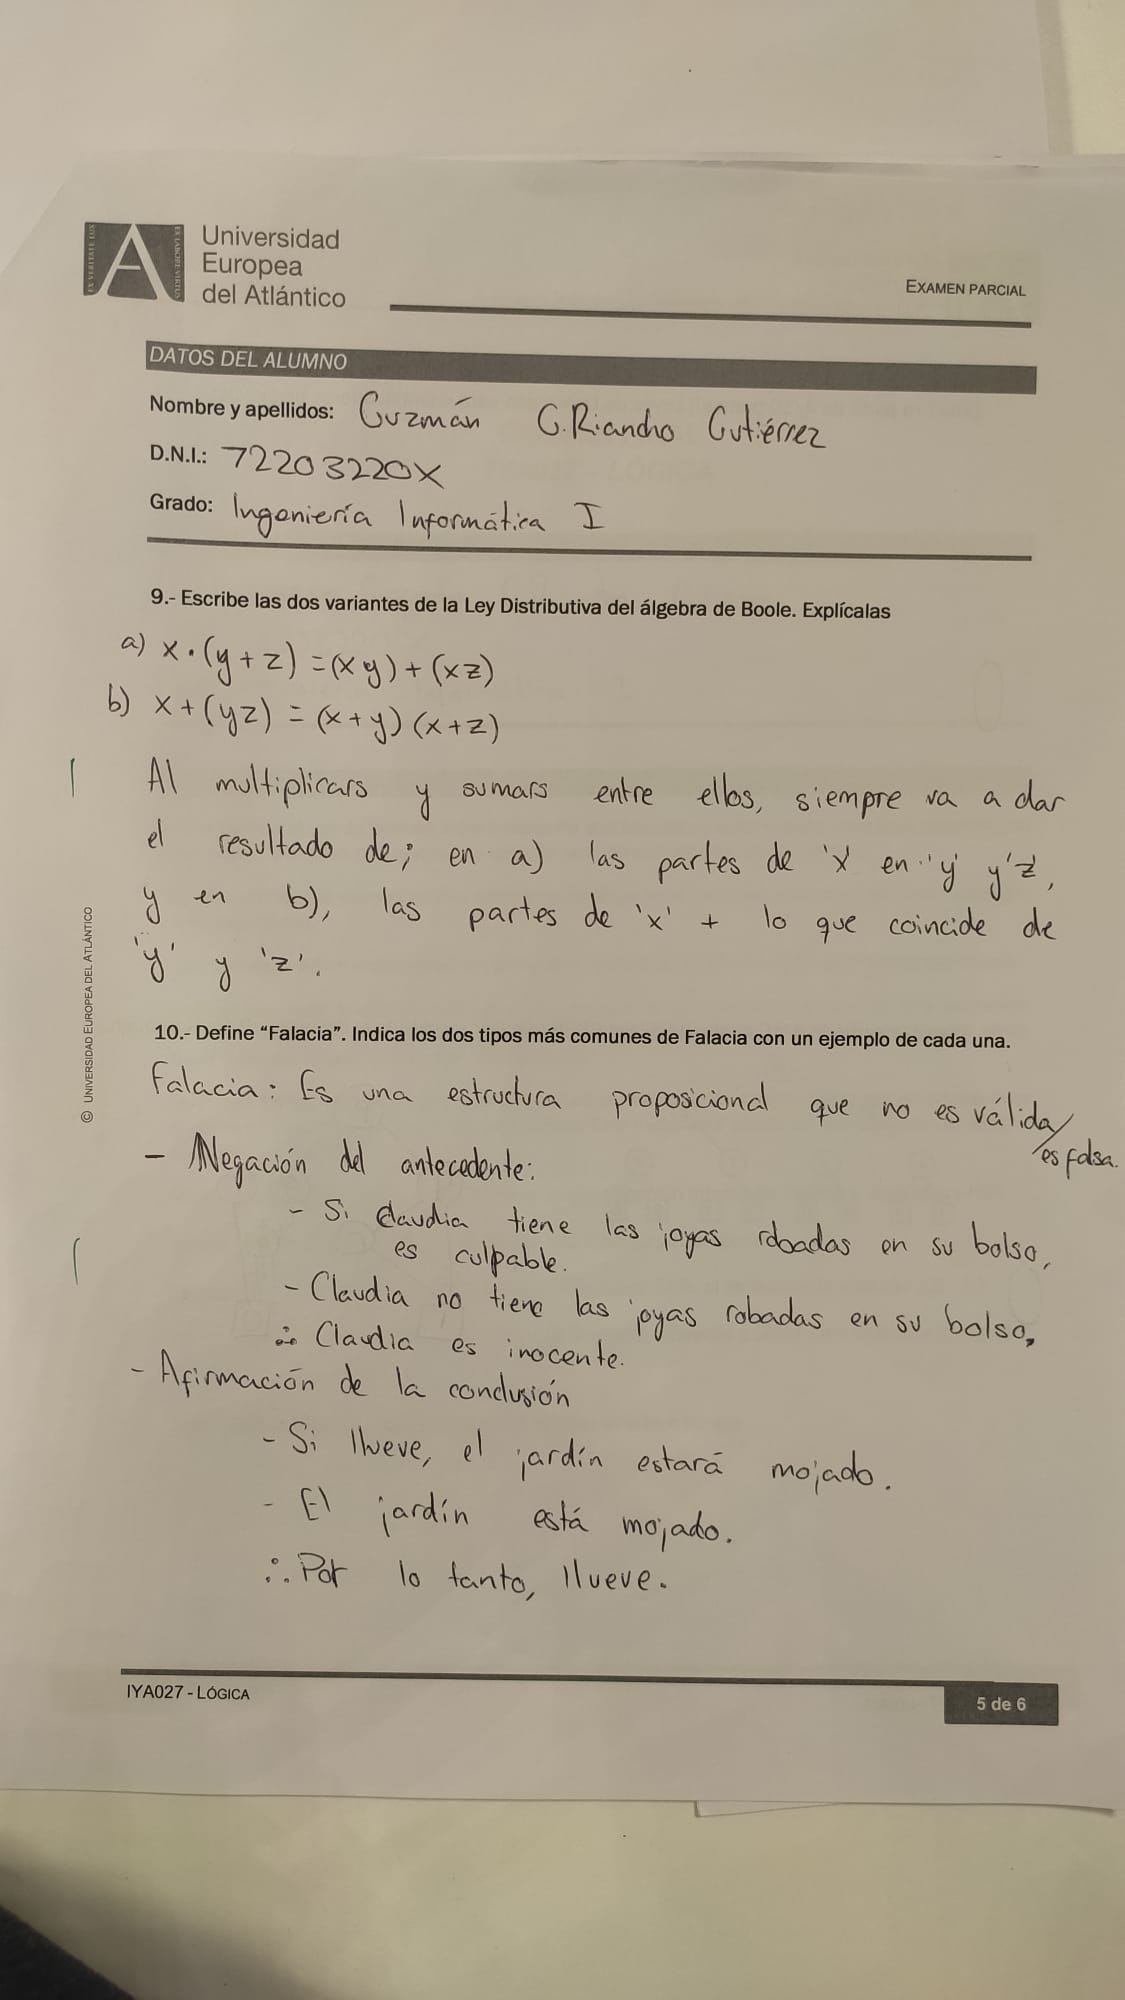 EX VERITATE LUX
EX LABORE VIRTUS
A
Universidad
Europea
del Atlántico
EXAMEN PARCIAL
DATOS DEL ALUMNO
Nombre y apellidos: Guzmán G.Riancho Gutiérrez
D.N.I.: 72203220X
Grado: Ingeniería Informática I
9.- Escribe las dos variantes de la Ley Distributiva del álgebra de Boole. Explícalas
a) x·(y+z) = (xy)+(xz)
b) x+(yz) = (x+y)(x+z)
Al multiplicars y sumars entre ellos, siempre va a dar
el resultado de; en a) las partes de 'x' en 'y' y 'z',
y en b), las partes de 'x' + lo que coincide de
'y' y 'z'.
10.- Define “Falacia”. Indica los dos tipos más comunes de Falacia con un ejemplo de cada una.
Falacia: Es una estructura proposicional que no es válida/
es falsa.
- Negación del antecedente:
- Si Claudia tiene las joyas robadas en su bolso,
es culpable.
- Claudia no tiene las joyas robadas en su bolso,
∴ Claudia es inocente.
- Afirmación de la conclusión
- Si llueve, el jardín estará mojado.
- El jardín está mojado.
∴ Por lo tanto, llueve.
© UNIVERSIDAD EUROPEA DEL ATLÁNTICO
IYA027 - LÓGICA
5 de 6